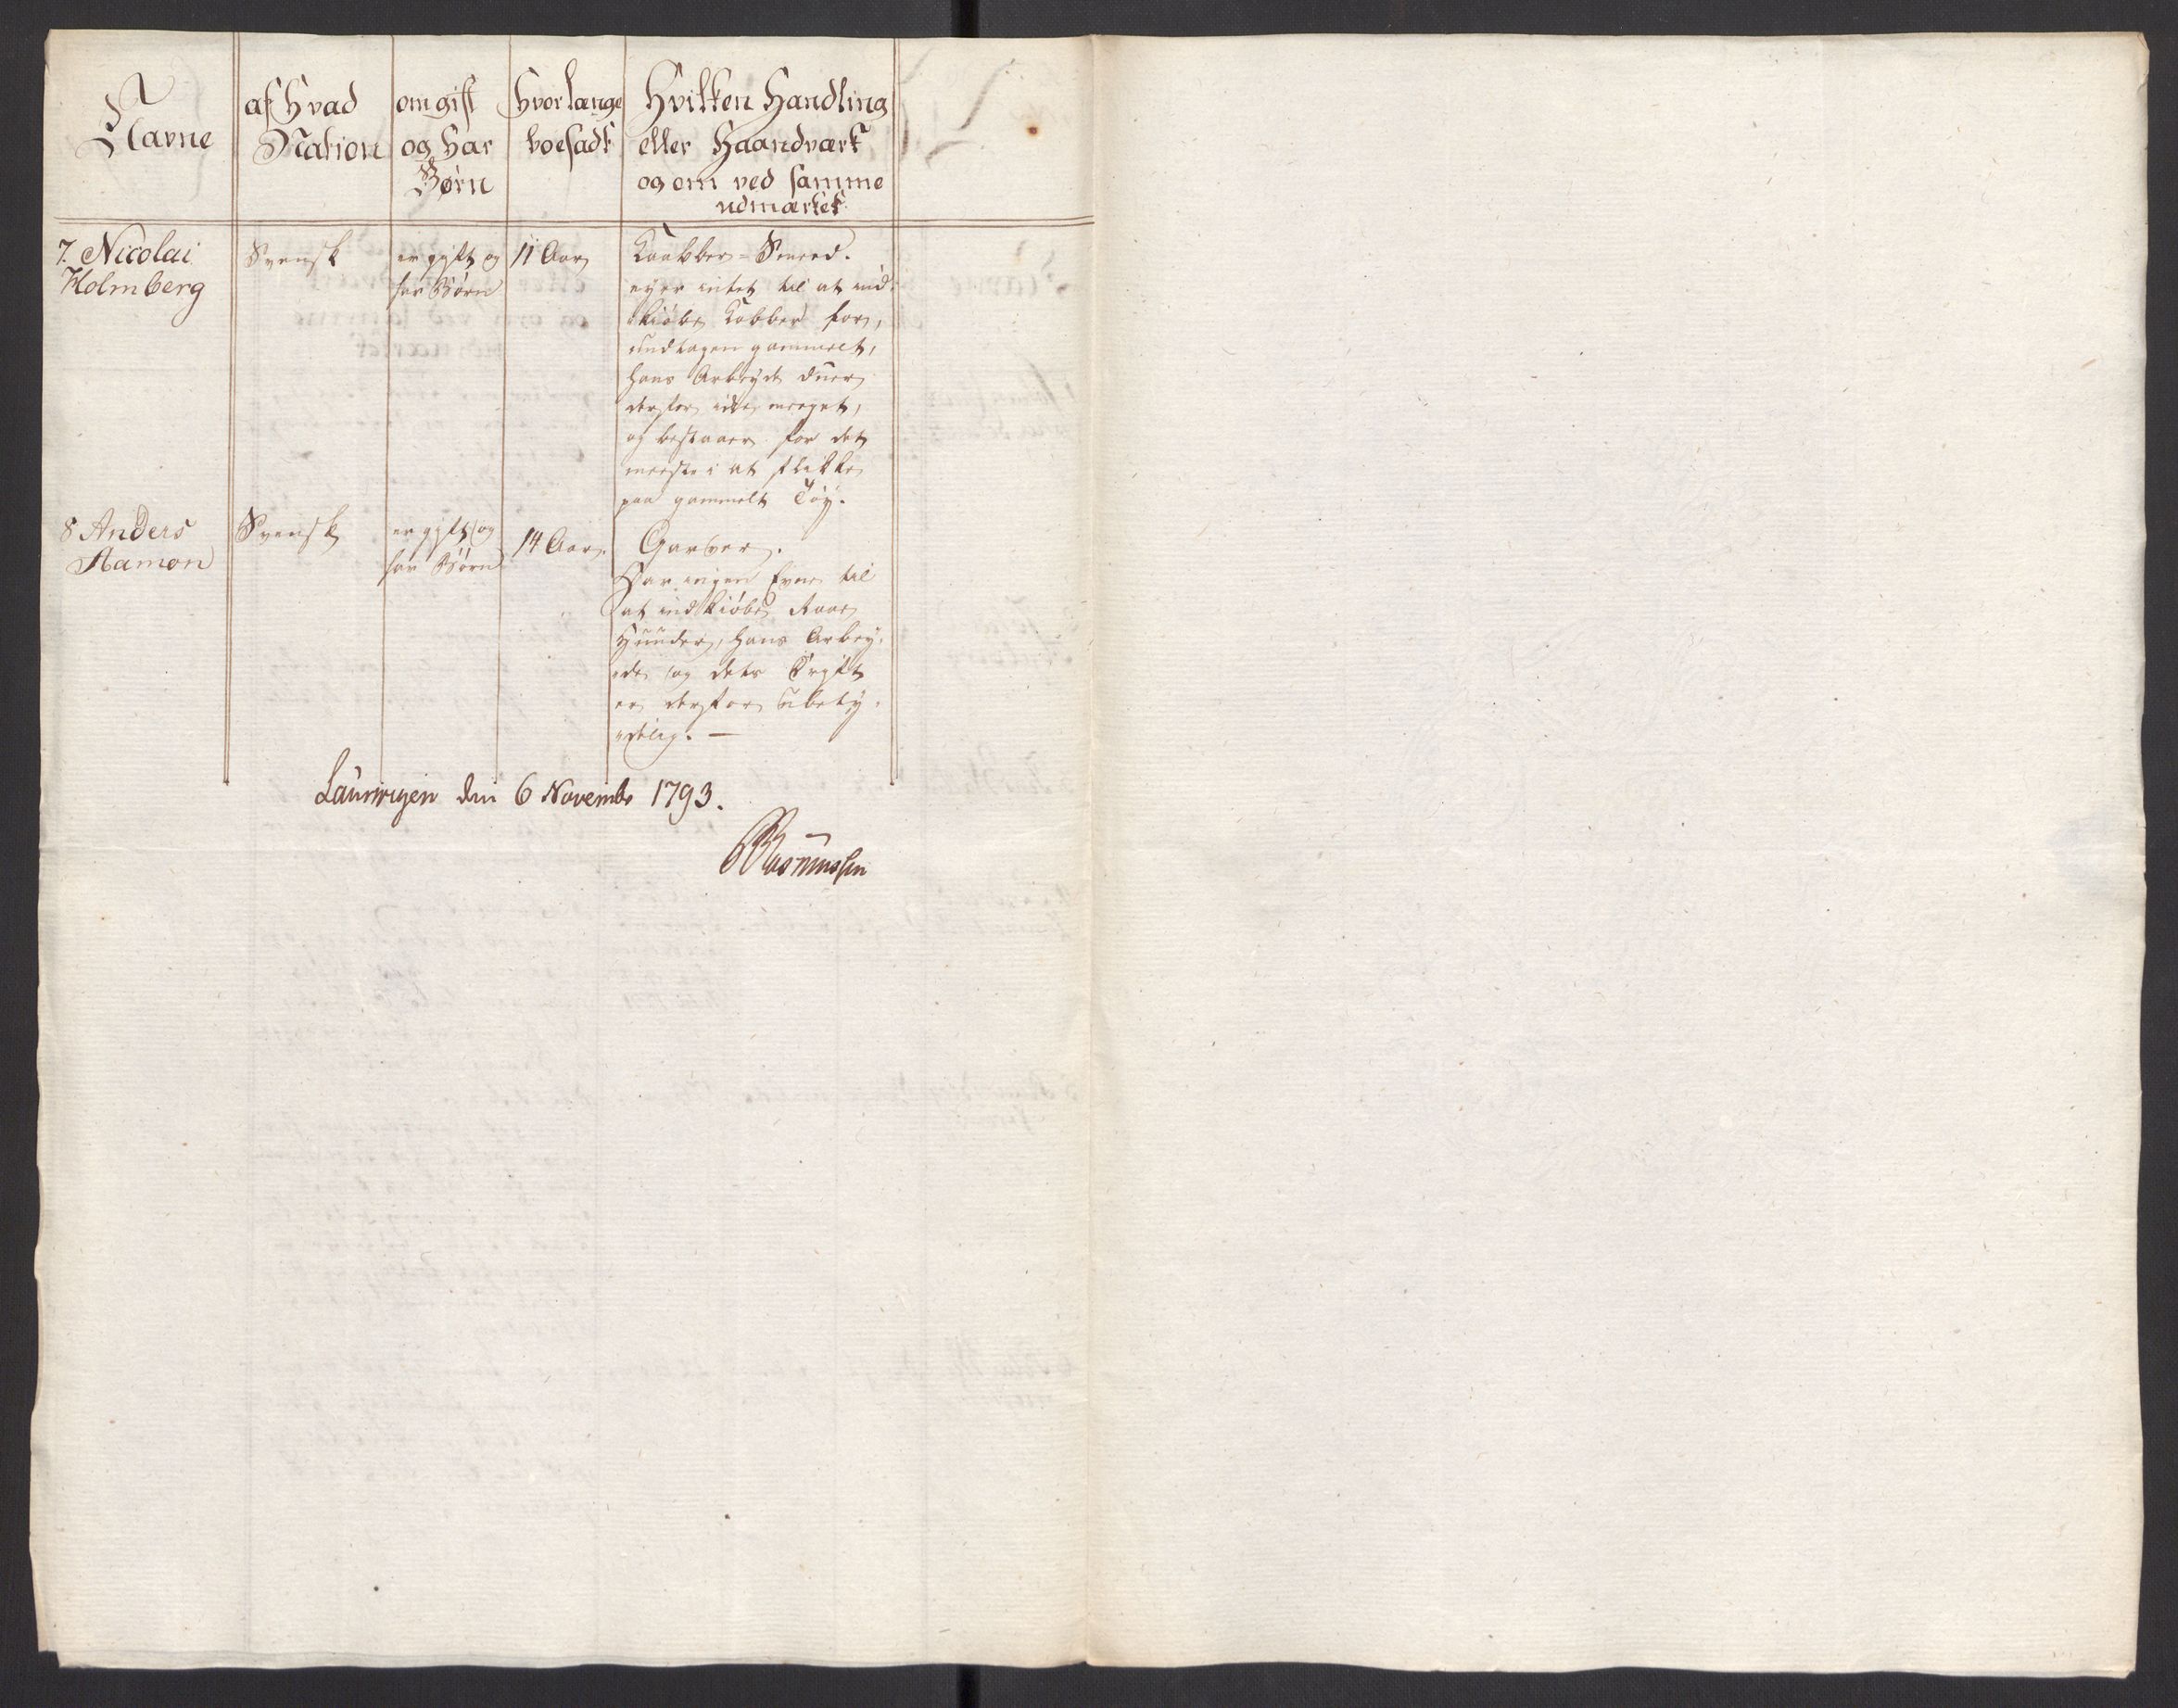 Navne
af Hvad
Nation
om gift
og Har
Børn
Hvorlænge
boesadt
Hvilken Handling
eller Haandværk
og om ved samme
udmærket
7. Nicolai
Holmberg
Svensk
er gift og
har Børn
11 Aar
Kaabber-Smeed.
eyer intet til at ind-
kiøbe Kobber for,
undtagen gammelt,
hans Arbeyde duer
derfor icke meeget,
og bestaaer for det
meeste i at flikke
paa gammelt Tøy.
8 Anders
Svensk
er gift og
har Børn
14 Aar.
Garver.
Har ingen Evne til
at indkiøbe Raae
Huuder, hans Arbey-
de og dets Drift
er derfor ubety-
delig. —
Laurwigen den 6 Novembr 1793.
Rasmussen